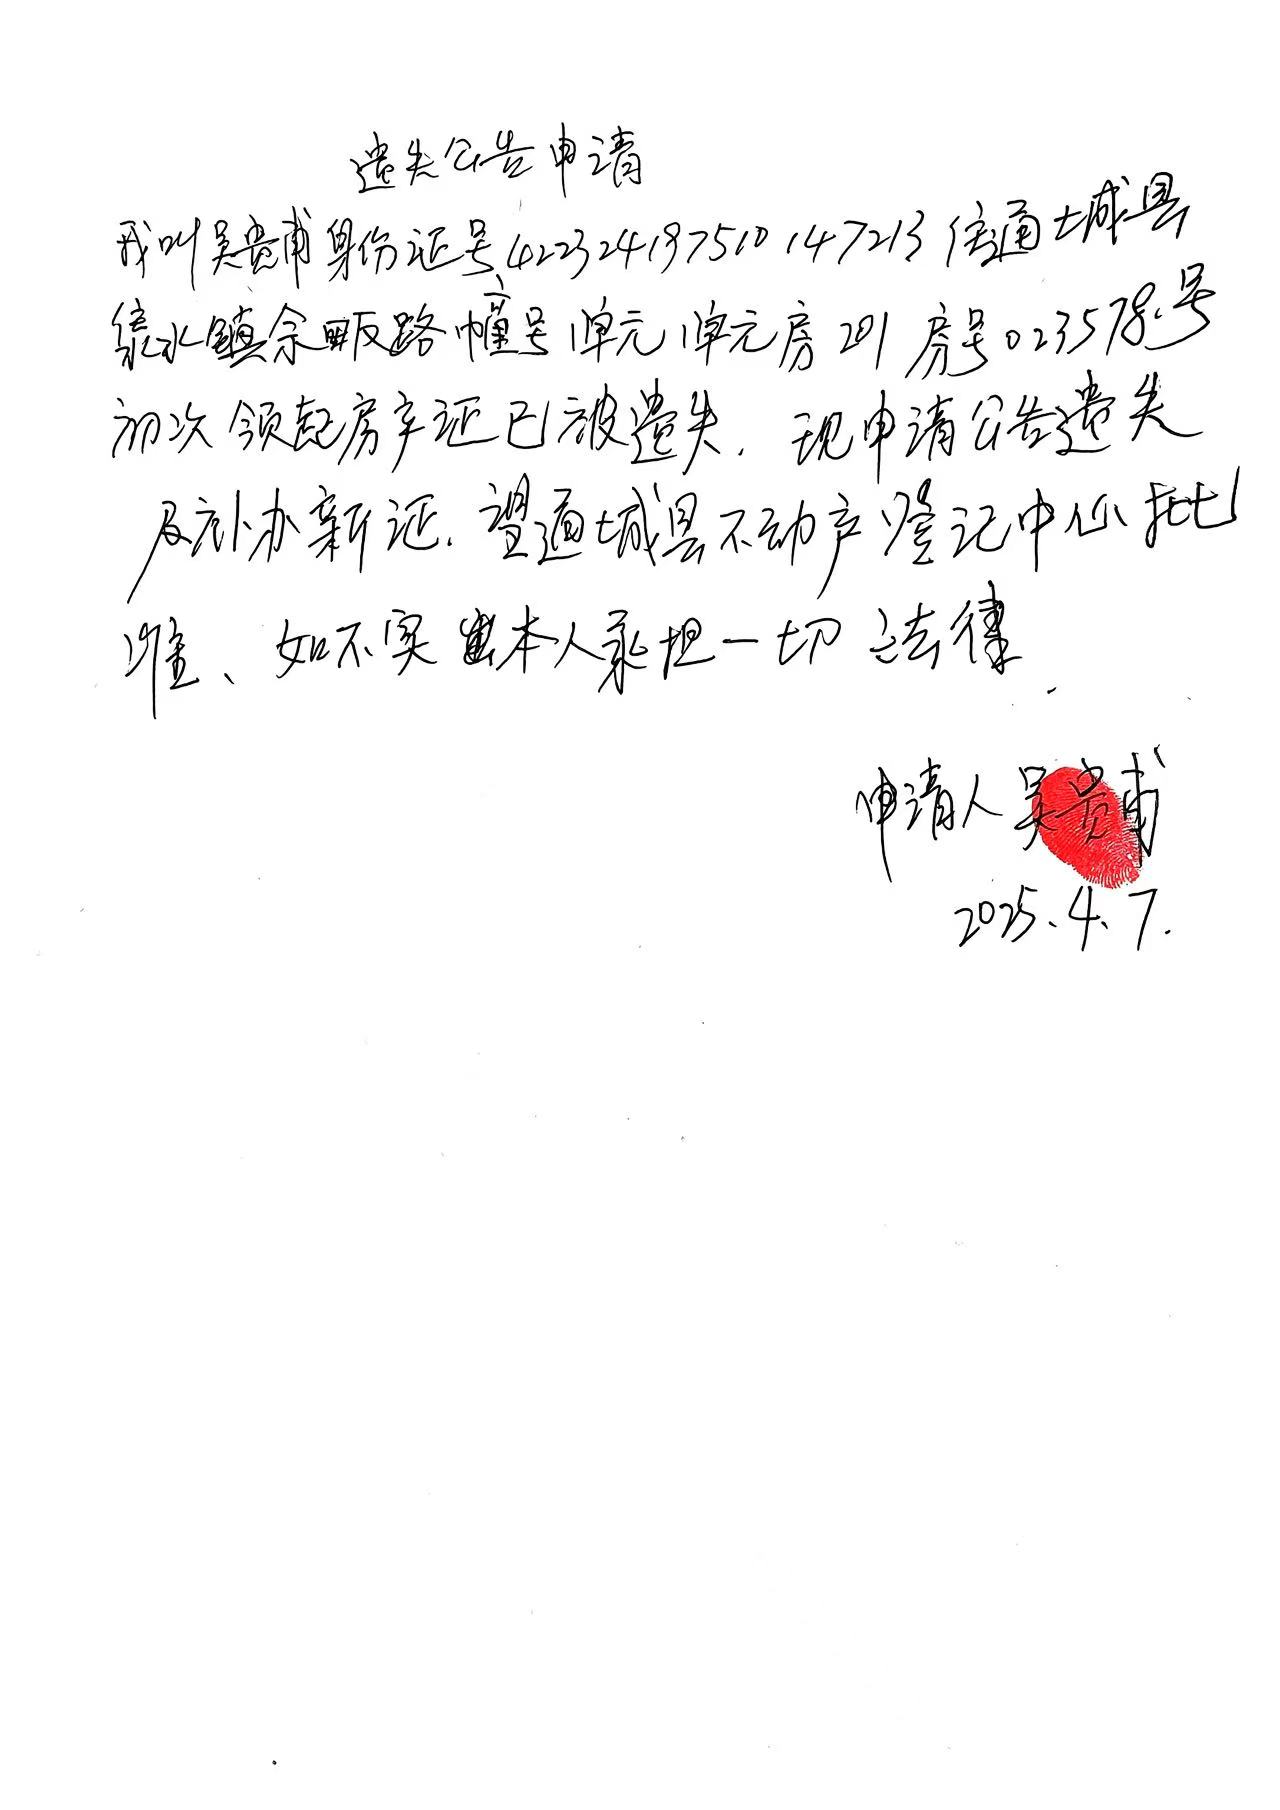 遗失公告申请
我叫吴贵甫身份证号422324197510147213住通城县
隽水镇余畈路幢号1单元1单元房201房号023578号
初次领起房产证已被遗失.现申请公告遗失
及补办新证.望通城县不动产登记中心批
准、如不实由本人承担一切法律.
申请人吴贵甫
2025.4.7.